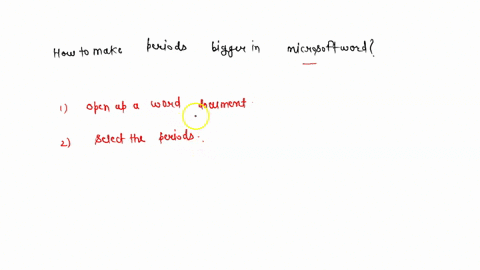 How to make periods bigger in microsoft word?
1) Open up a word document.
2) Select the periods.